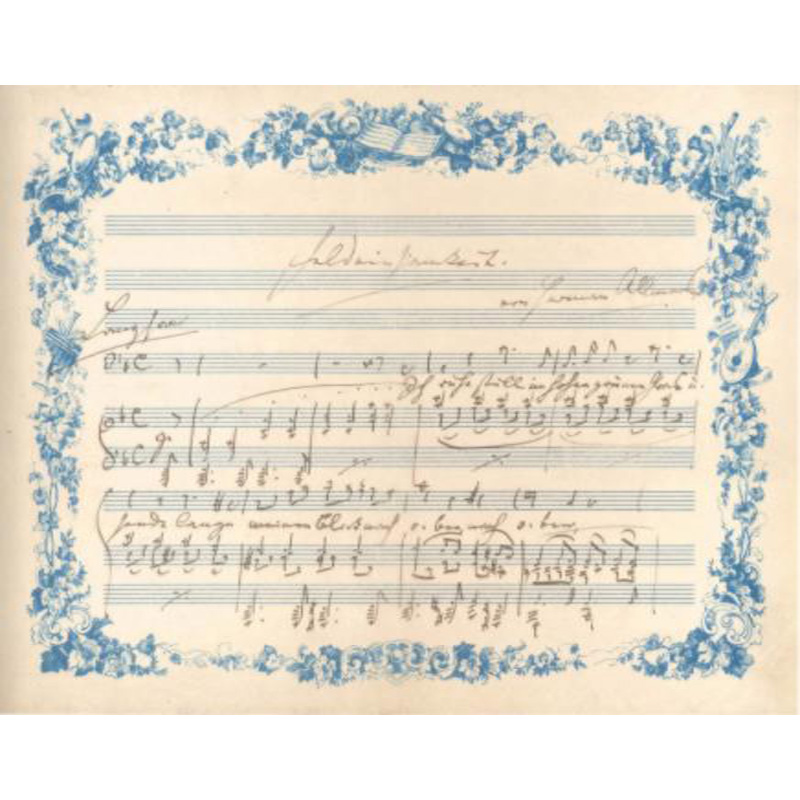 Feldeinsamkeit.
von Herman Allmers
Langsam
Ich ruhe still im hohen grünen Gras u.
sende lange meinen Blick nach oben, nach oben,